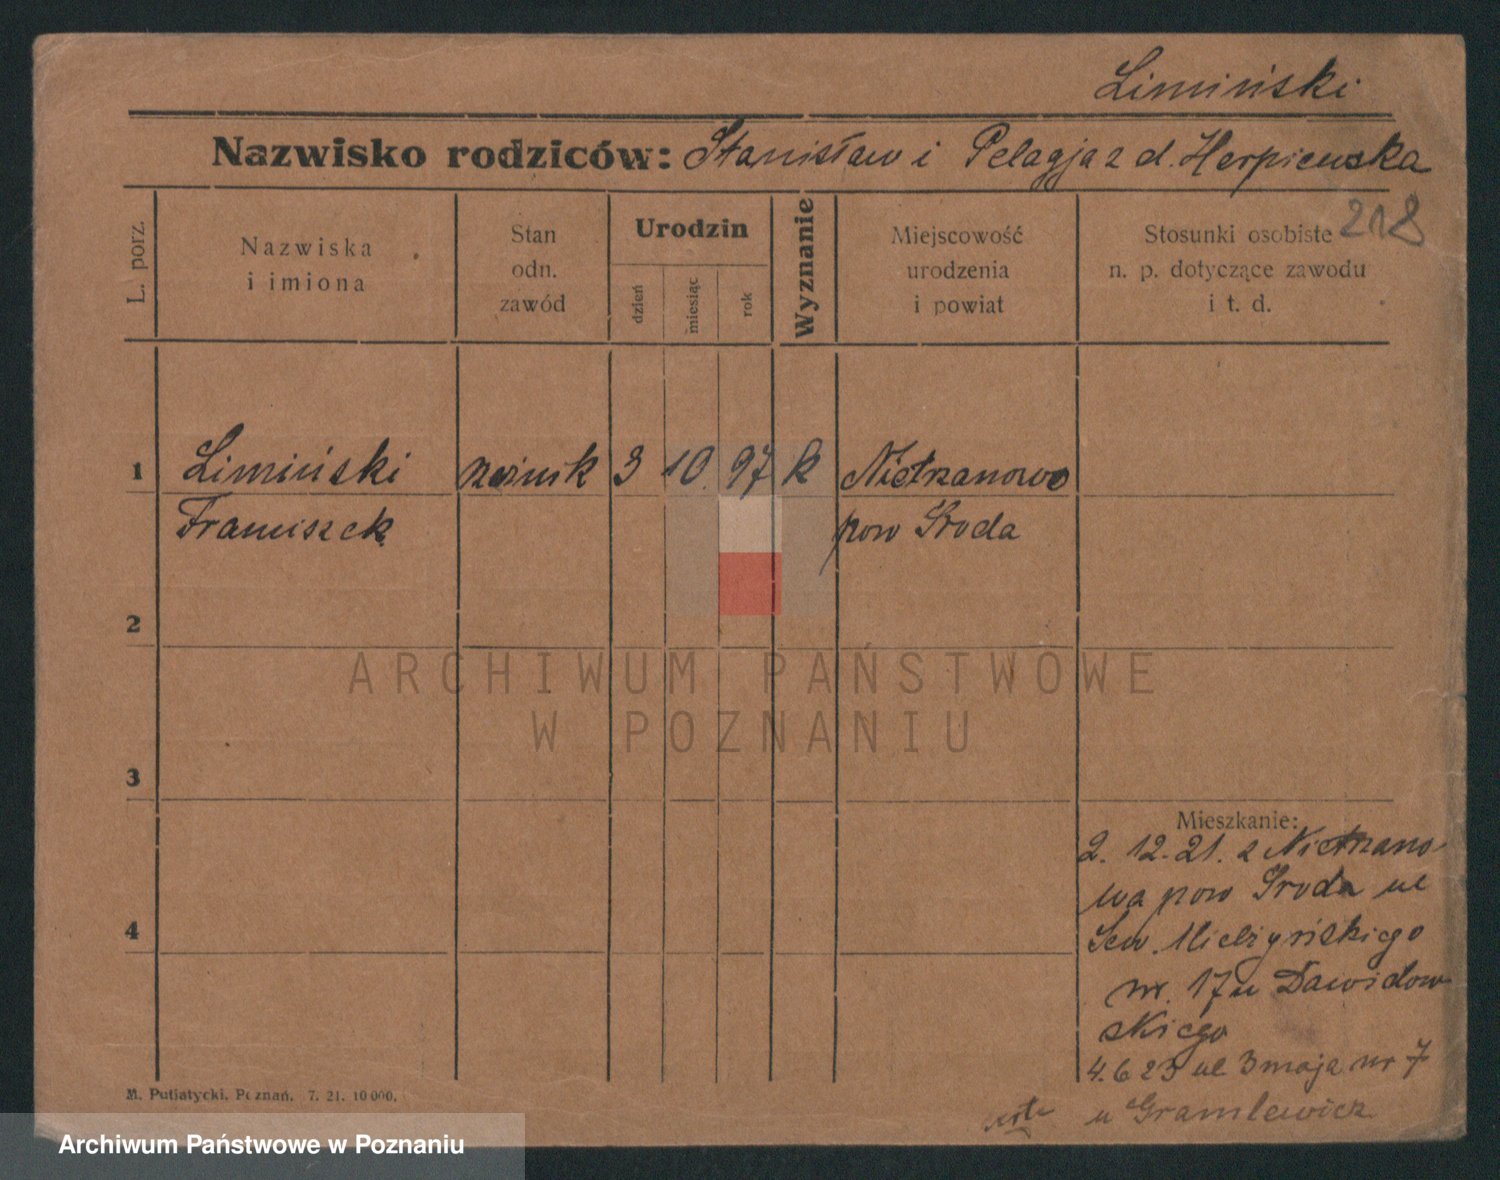 Limiński
Nazwisko rodziców: Stanisław i Pelagja z d. Herpienska
218
L. porz.
Nazwiska
i imiona
Stan
odn.
zawód
Urodzin
dzień
miesiąc
rok
Wyznanie
Miejscowość
urodzenia
i powiat
Stosunki osobiste
n. p. dotyczące zawodu
i t. d.
1 Limiński 3 10. 97 k Nietrzanowo
Franciszek pow Środa
2
3
4
Mieszkanie:
2. 12. 21. z Nietrzano
wa pow Środa ul
Sew. Mielżyńskiego
nr. 17 u Dawidow
skiego
4. 6 23 ul 3 maja nr 7
u Gramlewicz
M. Putiatycki, Poznań. 7. 21. 10 000.
ARCHIWUM PAŃSTWOWE
W POZNANIU
Archiwum Państwowe w Poznaniu